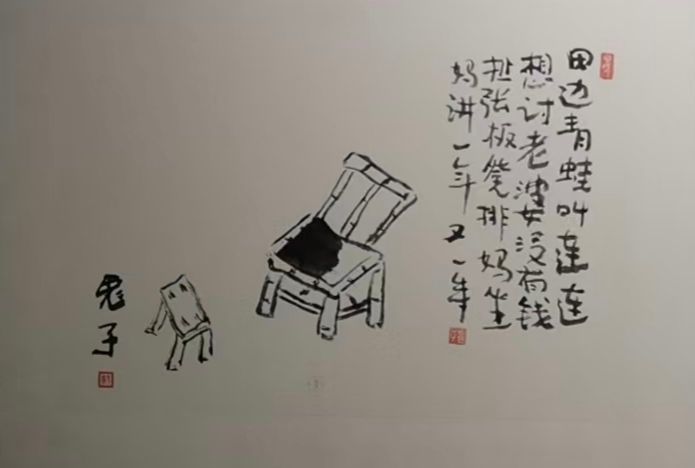 田边青蛙叫莲连
想讨老婆没有钱
扯张板凳排妈坐
妈讲一年又一年